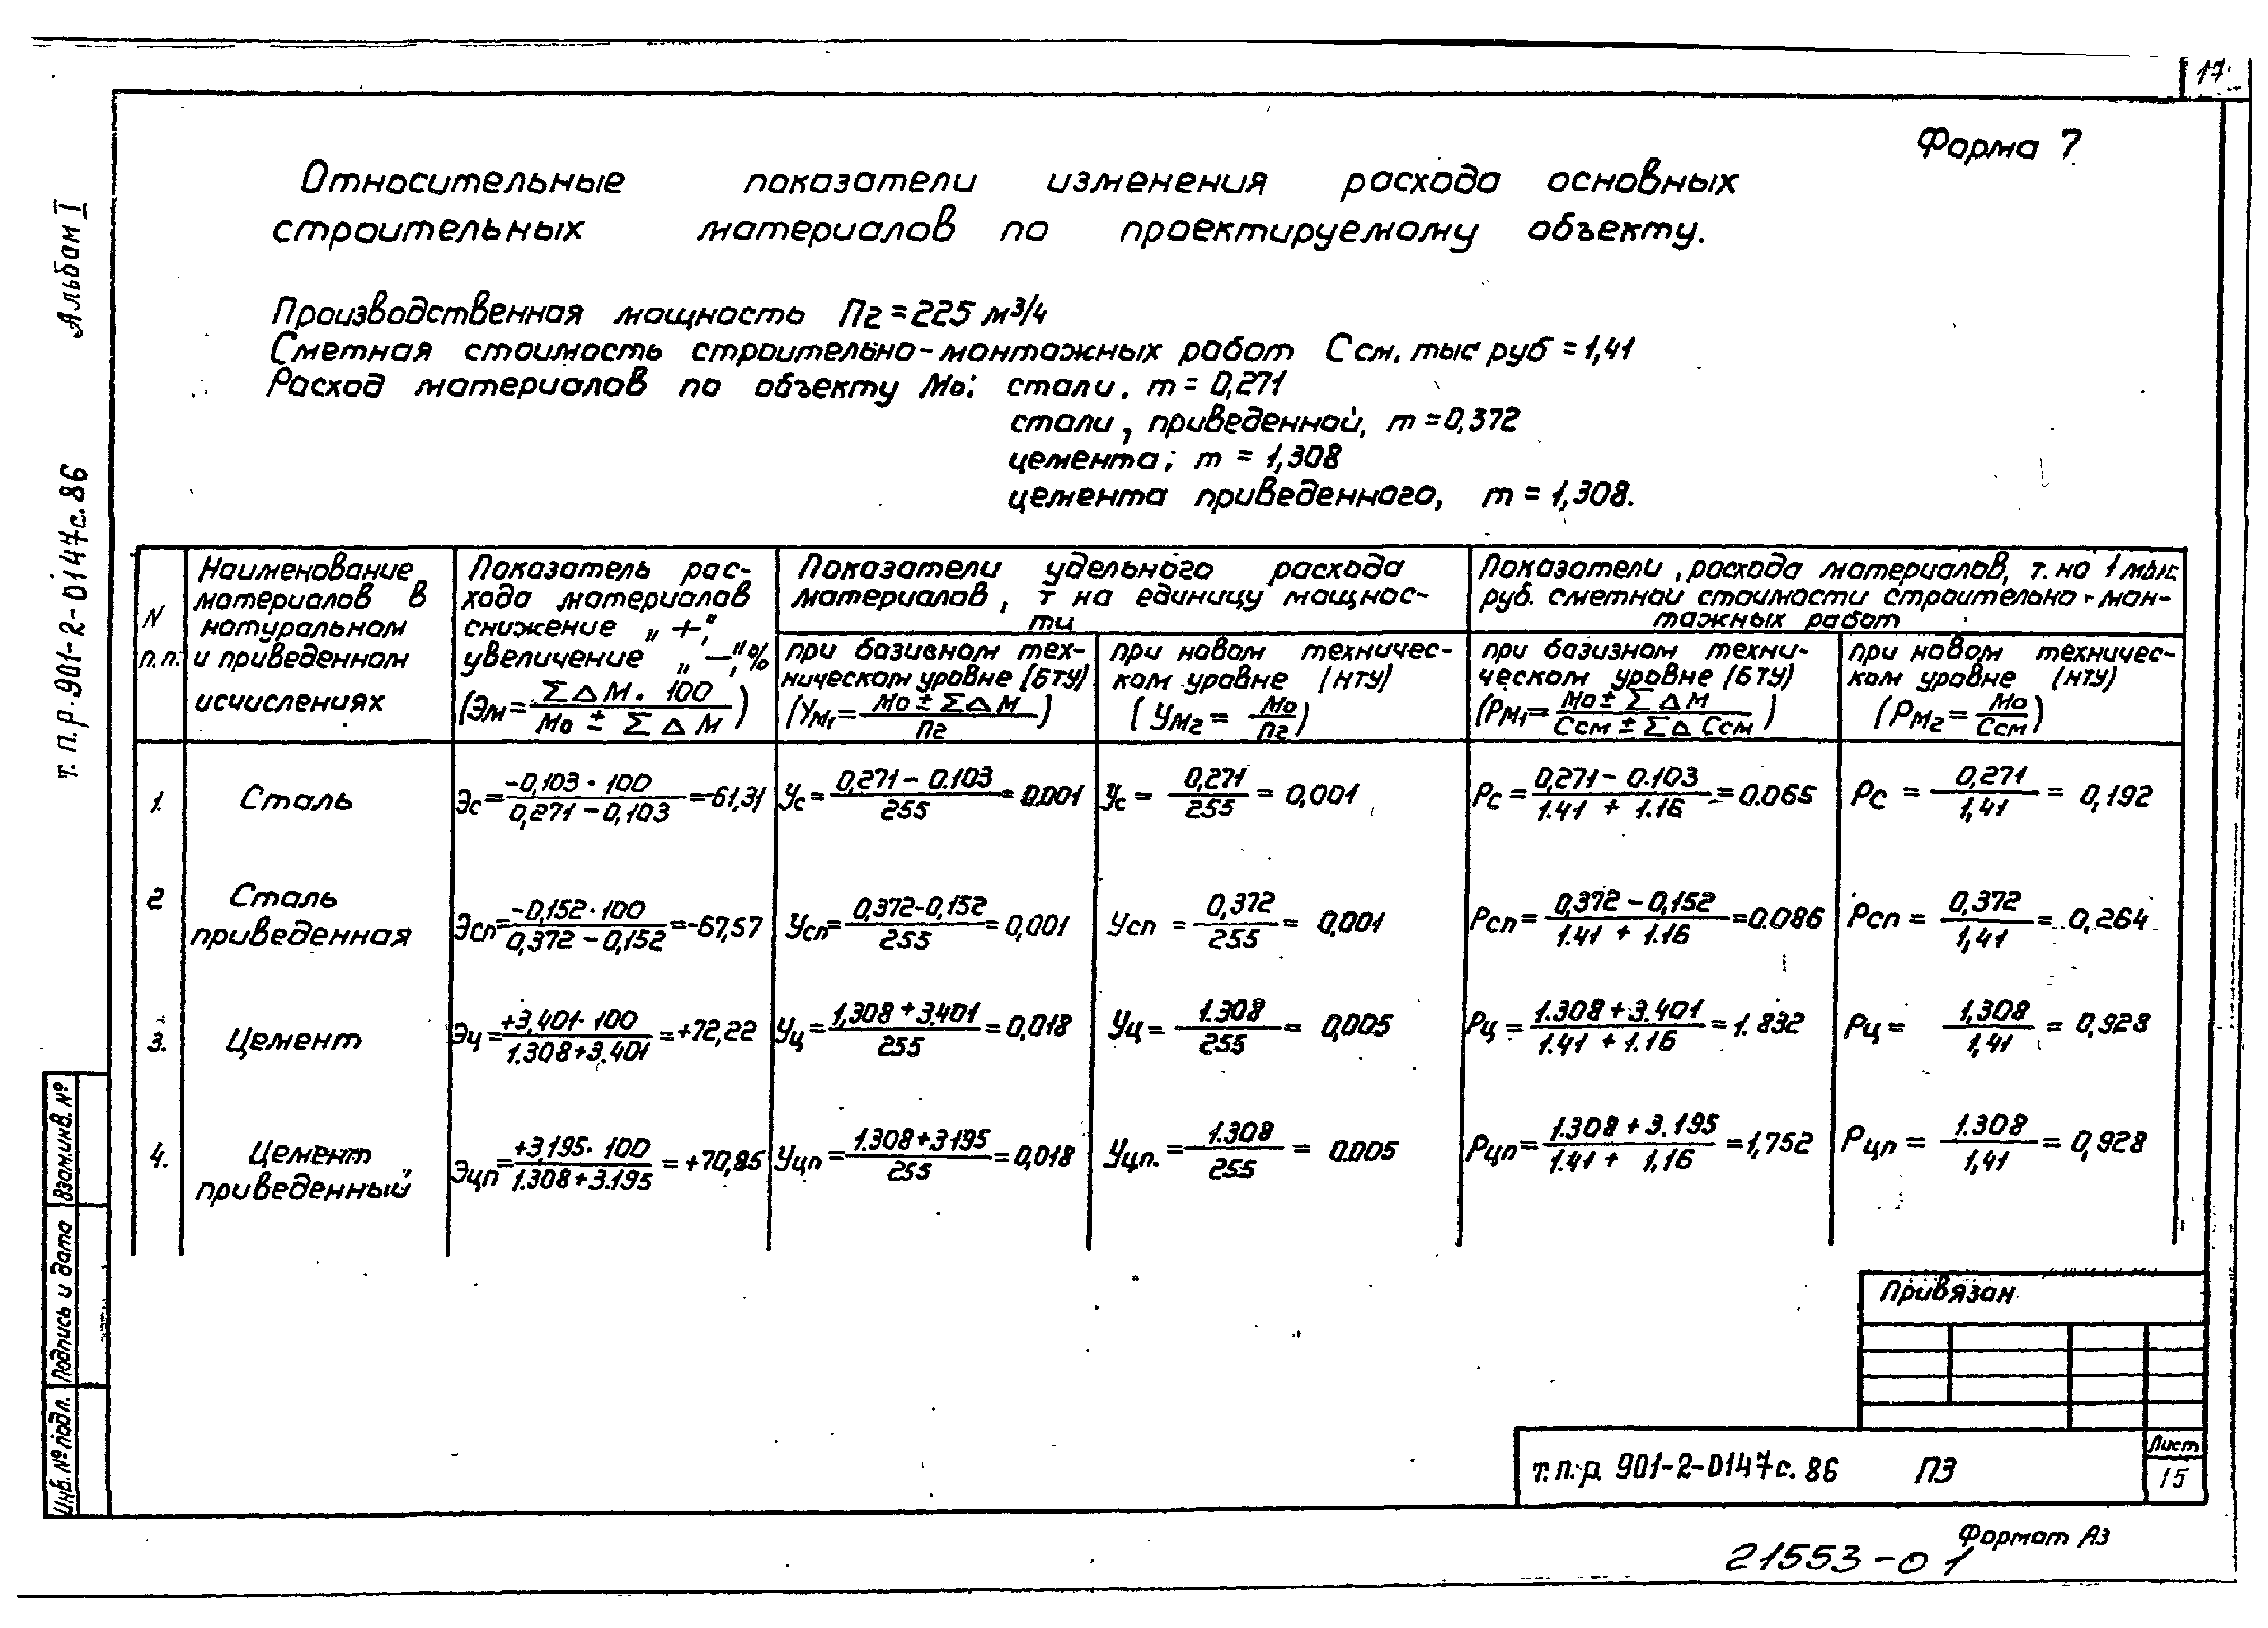 17
Форма 7
Относительные показатели изменения расхода основных
строительных материалов по проектируемому объекту.
Производственная мощность Пг = 225 м³/ч
Сметная стоимость строительно-монтажных работ Ссм, тыс руб = 1,41
Расход материалов по объекту Мо: стали. т = 0,271
стали, приведенной, т = 0,372
цемента; т = 1,308
цемента приведенного, т = 1,308.
Альбом I
т.п.р. 901-2-0147с.86
N п.п.
Наименование
материалов в
натуральном
и приведенном
исчислениях
Показатель рас-
хода материалов
снижение „+",
увеличение „—",%
(Эм = ΣΔМ · 100 / Мо ± ΣΔМ)
Показатели удельного расхода
материалов, т на единицу мощнос-
ти
при базивном тех-
ническом уровне (БТУ)
(Ум₁ = Мо ± ΣΔМ / Пг)
при новом техничес-
ком уровне (НТУ)
(Ум₂ = Мо / Пг)
Показатели, расхода материалов, т. на 1 тыс.
руб. сметной стоимости строительно-мон-
тажных работ
при базизном техни-
ческом уровне (БТУ)
(Рм₁ = Мо ± ΣΔМ / Ссм ± ΣΔ Ссм)
при новом техничес-
ком уровне (НТУ)
(Рм₂ = Мо / Ссм)
1. Сталь Эс = -0,103 · 100 / 0,271 - 0,103 = -61,31 Ус = 0,271 - 0.103 / 255 = 0.001 Ус = 0,271 / 255 = 0,001 Рс = 0,271 - 0.103 / 1.41 + 1.16 = 0.065 Рс = 0,271 / 1,41 = 0,192
2 Сталь
приведенная Эсп = -0,152 · 100 / 0,372 - 0,152 = -67,57 Усп = 0,372 - 0,152 / 255 = 0,001 Усп = 0,372 / 255 = 0,001 Рсп = 0,372 - 0,152 / 1.41 + 1.16 = 0.086 Рсп = 0,372 / 1,41 = 0,264
3. Цемент Эц = +3,401 · 100 / 1.308 + 3.401 = +72,22 Уц = 1,308 + 3.401 / 255 = 0,018 Уц = 1.308 / 255 = 0,005 Рц = 1.308 + 3.401 / 1.41 + 1.16 = 1.832 Рц = 1,308 / 1,41 = 0,928
4. Цемент
приведенный Эцп = +3,195 · 100 / 1.308 + 3.195 = +70,85 Уцп = 1.308 + 3195 / 255 = 0,018 Уцп. = 1.308 / 255 = 0.005 Рцп = 1.308 + 3.195 / 1.41 + 1,16 = 1,752 Рцп = 1.308 / 1,41 = 0,928
Взам.инв. №
Подпись и дата
Инв. № подл.
Привязан
т.п.р 901-2-0147с.86 ПЗ
Лист
15
Формат А3
21553-01